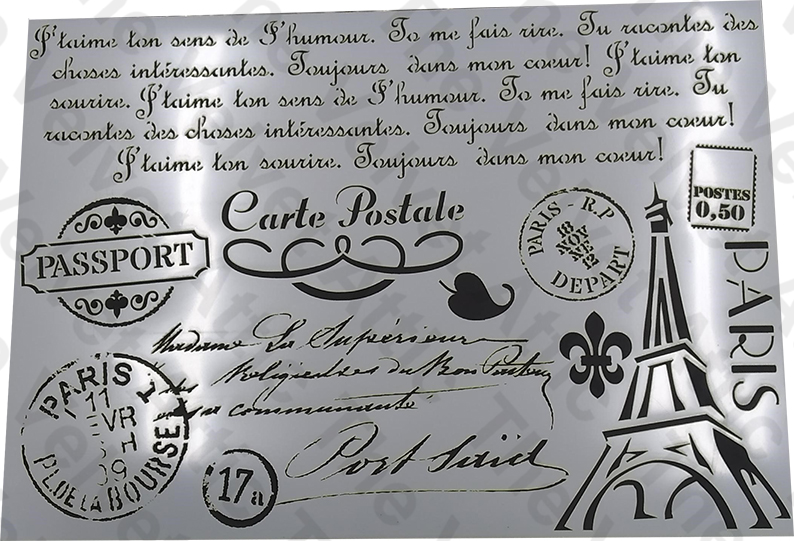 J'taime ton sens de I'humour. To me fais rire. Tu racontes des
choses intéressantes. Toujours dans mon coeur! J'taime ton
sourire. J'taime ton sens de I'humour. To me fais rire. Tu
racontes des choses intéressantes. Toujours dans mon coeur!
J'taime ton sourire. Toujours dans mon coeur!
POSTES
0,50
Carte Postale
PARIS - R.P
18
NOV
12
DEPART
PASSPORT
PARIS
Madame La Supérieure
Religieuses du Bon Pasteur
communauté
Port Saïd
PARIS 1
11
VR
H
09
PL. DE LA BOURSE
17a
The Velvet Attic